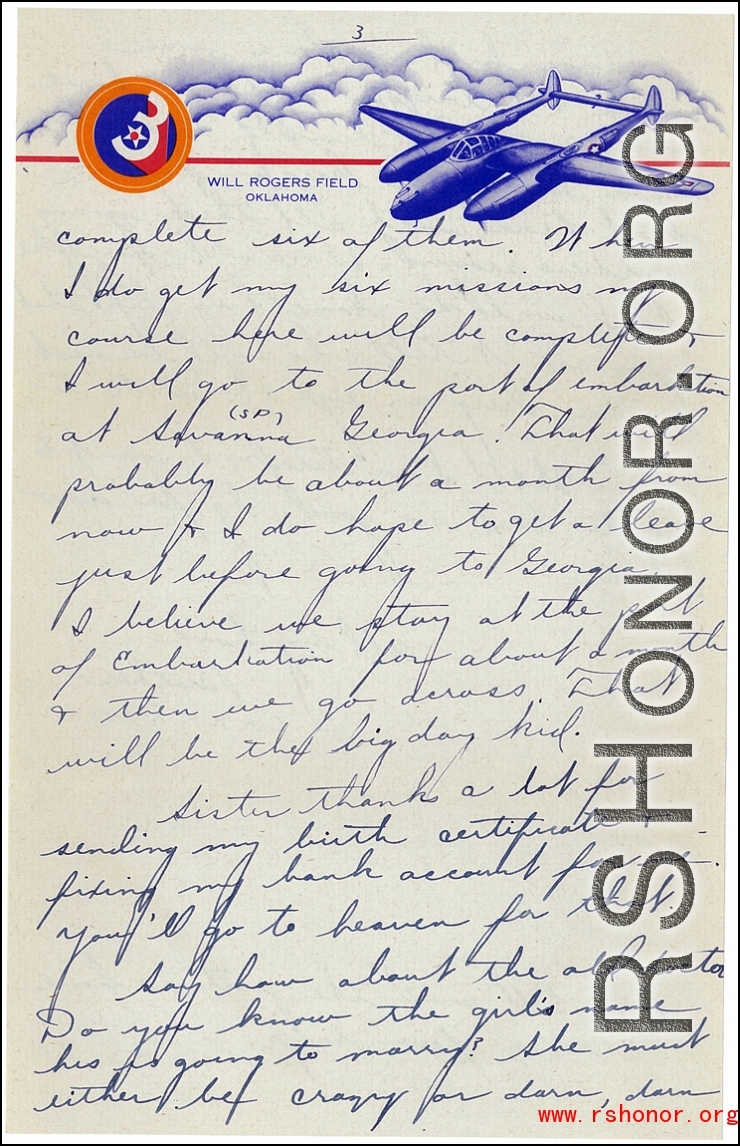 3
WILL ROGERS FIELD
OKLAHOMA
complete six of them. When
I do get my six missions my
course here will be complete &
I will go to the port of embarkation
(SP)
at Savanna Georgia. That will
probably be about a month from
now & I do hope to get a leave
just before going to Georgia.
I believe we stay at the port
of Embarkation for about a month
& then we go across. That
will be the big day kid.
Sister thanks a lot for
sending my birth certificate &
fixing my bank account for
You'll go to heaven for that.
Say how about the old
Do you know the girl's name
his is going to marry? She must
either be crazy or darn, darn
RSHONOR.ORG
www.rshonor.org